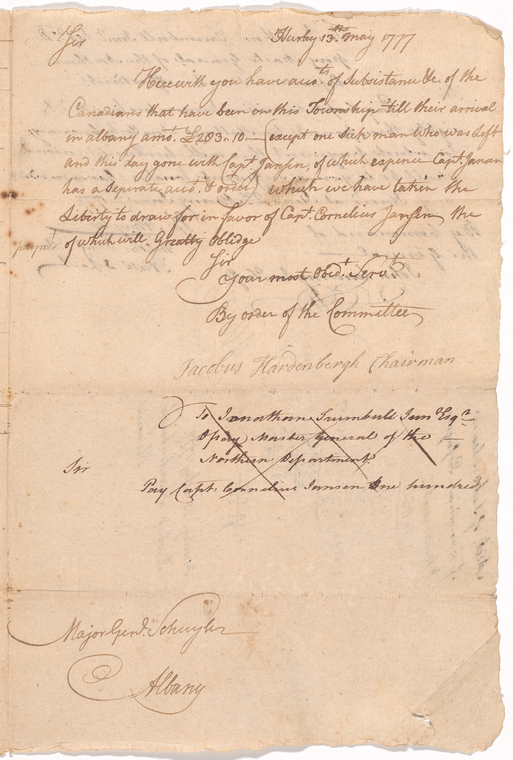 Sir Hurley 13th May 1777
Herewith you have accts of Subsistance &c. of the
Canadians that have been in this Township till their arrival
in albany amt. £283..10— (except one Sick man who was Left
and this day gone with Capt Jansen, of which expence Capt. Jansan
has a Seperate acct. & order) which we have taken the
Liberty to draw for in favor of Capt. Cornelius Jansen the
paymt. of which will Greatly Oblidge
Sir
Your most Obedt. Servt.
By order of the Committee
Jacobus Hardenbergh Chairman
To Jonathan Trumbull Junr. Esqr.
Dpay Master General of the
Northern Department
Sir
Pay Capt. Cornelius Jansen One hundred
Major Genl. Schuyler
Albany